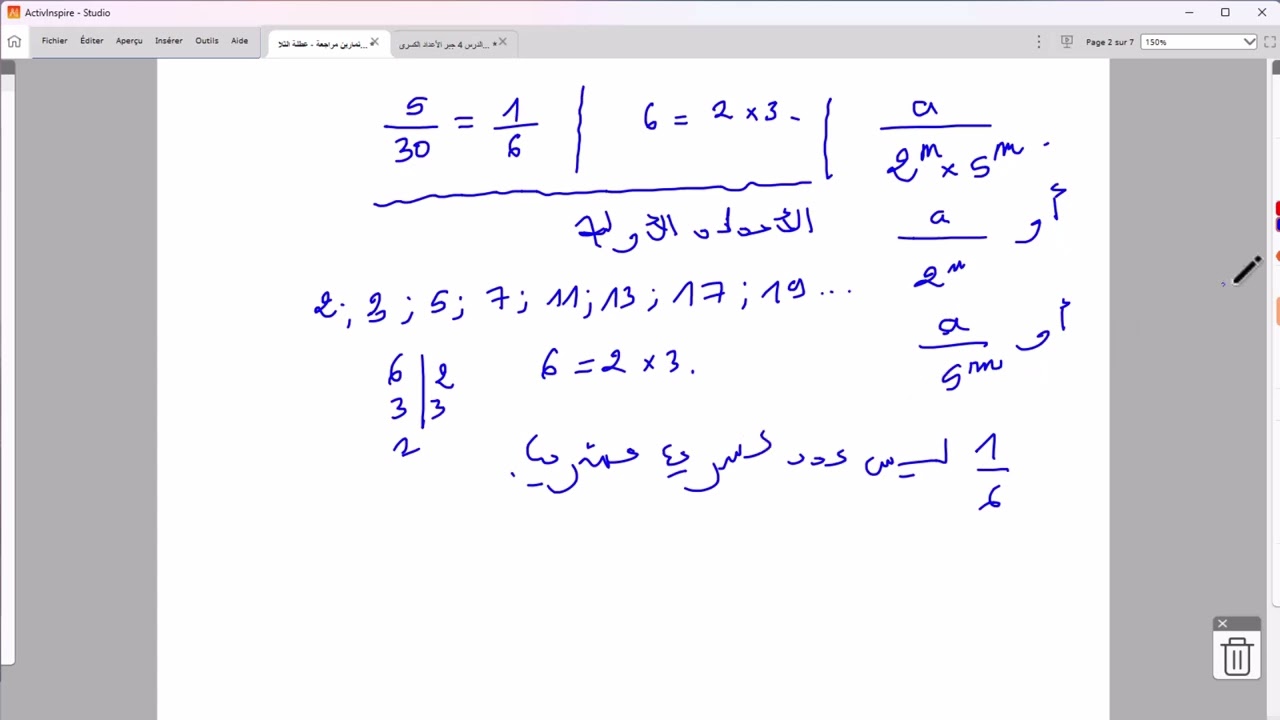 ActivInspire - Studio
Fichier Éditer Aperçu Insérer Outils Aide
...تمارين مراجعة - عطلة الثلا*
...الدرس 4 جبر الأعداد الكسري*
Page 2 sur 7 150%
5/30 = 1/6 | 6 = 2 × 3 | a/(2^m × 5^m)
الأعداد الأولية
أو a/2^n
2; 3; 5; 7; 11; 13; 17; 19 ...
أو a/5^m
6 | 2
3 | 3
2
6 = 2 × 3.
1/6 ليس عدد كسري عشريا.